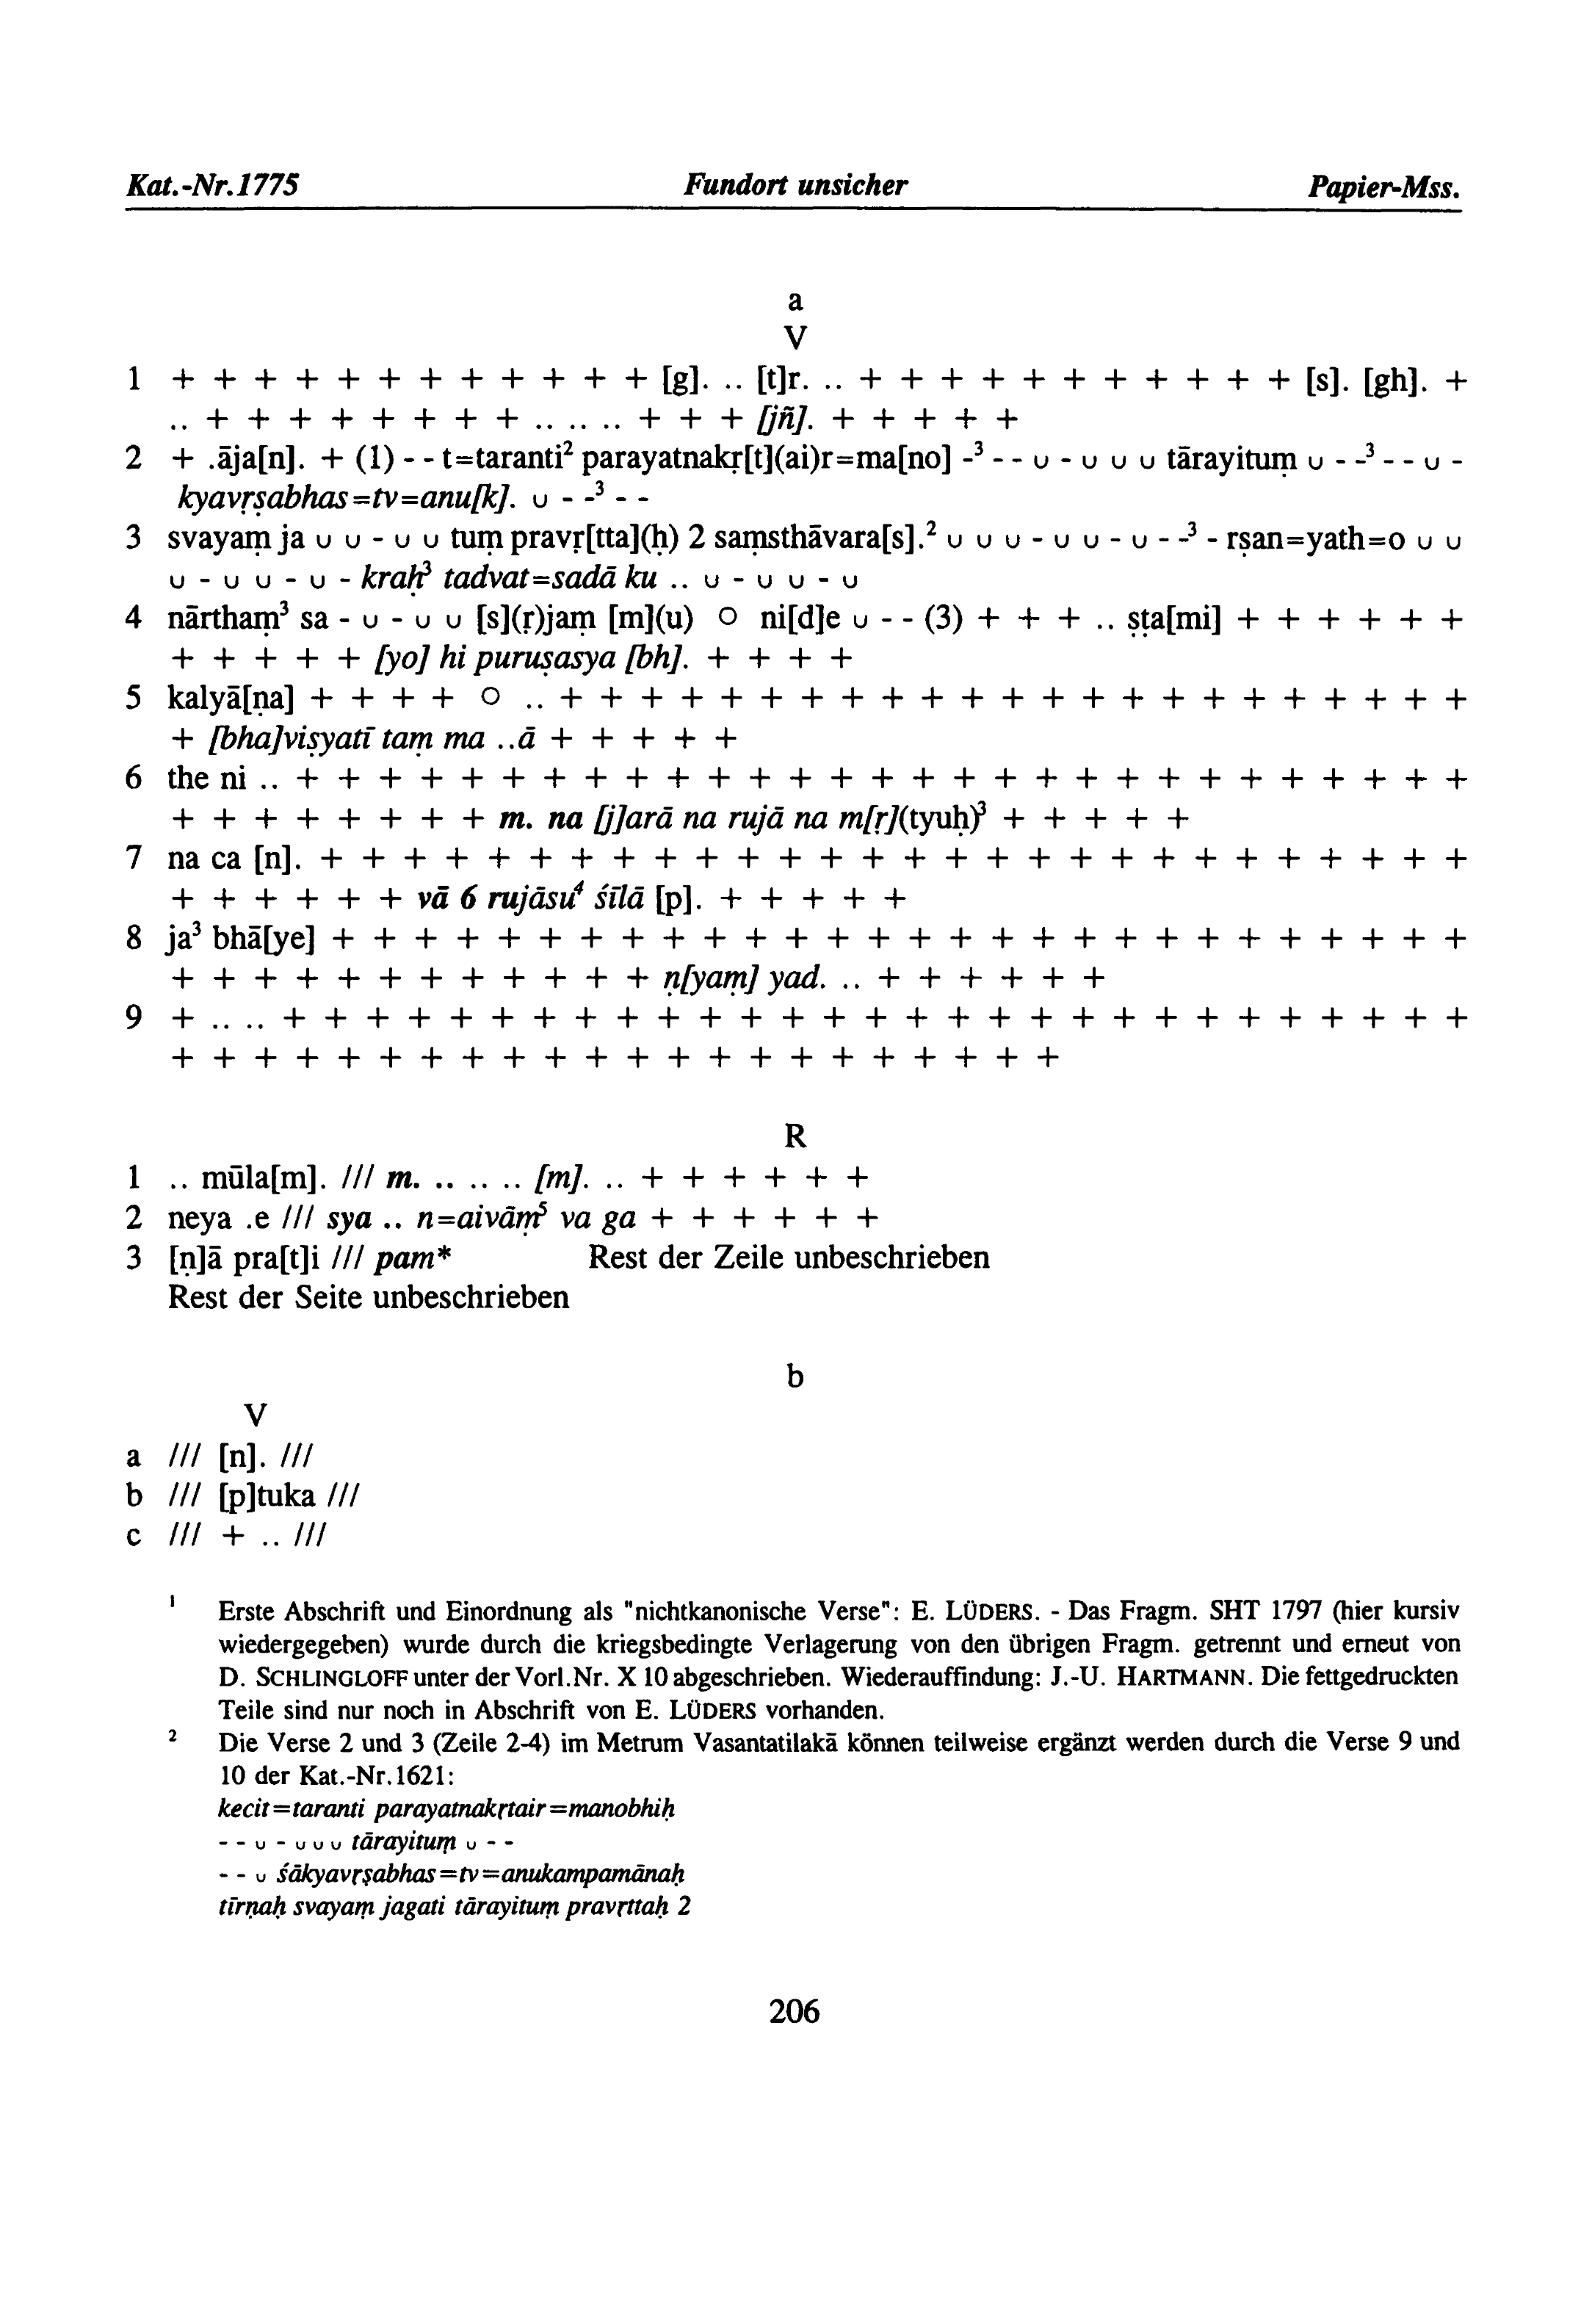 Kat.-Nr.1775 Fundort unsicher Papier-Mss.
a
V
1 + + + + + + + + + + + + [g]. .. [t]r. .. + + + + + + + + + + + [s]. [gh]. +
.. + + + + + + + + .. .. .. + + + [jñ]. + + + + +
2 + .āja[n]. + (1) - - t=taranti² parayatnakṛ[t](ai)r=ma[no] -³ - - ∪ - ∪ ∪ ∪ tārayituṃ ∪ - -³ - - ∪ -
kyavṛṣabhas=tv=anu[k]. ∪ - -³ - -
3 svayaṃ ja ∪ ∪ - ∪ ∪ tuṃ pravṛ[tta](ḥ) 2 saṃsthāvara[s].² ∪ ∪ ∪ - ∪ ∪ - ∪ - -³ - rṣan=yath=o ∪ ∪
∪ - ∪ ∪ - ∪ - kraḥ³ tadvat=sadā ku .. ∪ - ∪ ∪ - ∪
4 nārthaṃ³ sa - ∪ - ∪ ∪ [s](ṛ)jaṃ [m](u) ○ ni[d]e ∪ - - (3) + + + .. ṣṭa[mi] + + + + + +
+ + + + + [yo] hi puruṣasya [bh]. + + + +
5 kalyā[ṇa] + + + + ○ .. + + + + + + + + + + + + + + + + + + + + + + +
+ [bha]viṣyatī taṃ ma ..ā + + + + +
6 the ni .. + + + + + + + + + + + + + + + + + + + + + + + + + + + + +
+ + + + + + + + m. na [j]arā na rujā na m[ṛ](tyuḥ)³ + + + + +
7 na ca [n]. + + + + + + + + + + + + + + + + + + + + + + + + + + + +
+ + + + + + vā 6 rujāsu⁴ śīlā [p]. + + + + +
8 ja³ bhā[ye] + + + + + + + + + + + + + + + + + + + + + + + + + + + +
+ + + + + + + + + + + + ṇ[yaṃ] yad. .. + + + + + +
9 + .. .. + + + + + + + + + + + + + + + + + + + + + + + + + + + + +
+ + + + + + + + + + + + + + + + + + + + + +
R
1 .. mūla[m]. /// m. .. .. .. [m]. .. + + + + + +
2 neya .e /// sya .. n=aivāṃ⁵ va ga + + + + + +
3 [ṇ]ā pra[t]i /// pam* Rest der Zeile unbeschrieben
Rest der Seite unbeschrieben
b
V
a /// [n]. ///
b /// [p]tuka ///
c /// + .. ///
¹ Erste Abschrift und Einordnung als "nichtkanonische Verse": E. LÜDERS. - Das Fragm. SHT 1797 (hier kursiv
wiedergegeben) wurde durch die kriegsbedingte Verlagerung von den übrigen Fragm. getrennt und erneut von
D. SCHLINGLOFF unter der Vorl.Nr. X 10 abgeschrieben. Wiederauffindung: J.-U. HARTMANN. Die fettgedruckten
Teile sind nur noch in Abschrift von E. LÜDERS vorhanden.
² Die Verse 2 und 3 (Zeile 2-4) im Metrum Vasantatilakā können teilweise ergänzt werden durch die Verse 9 und
10 der Kat.-Nr.1621:
kecit=taranti parayatnakṛtair=manobhiḥ
- - ∪ - ∪ ∪ ∪ tārayituṃ ∪ - -
- - ∪ śākyavṛṣabhas=tv=anukampamānaḥ
tīrṇaḥ svayaṃ jagati tārayituṃ pravṛttaḥ 2
206